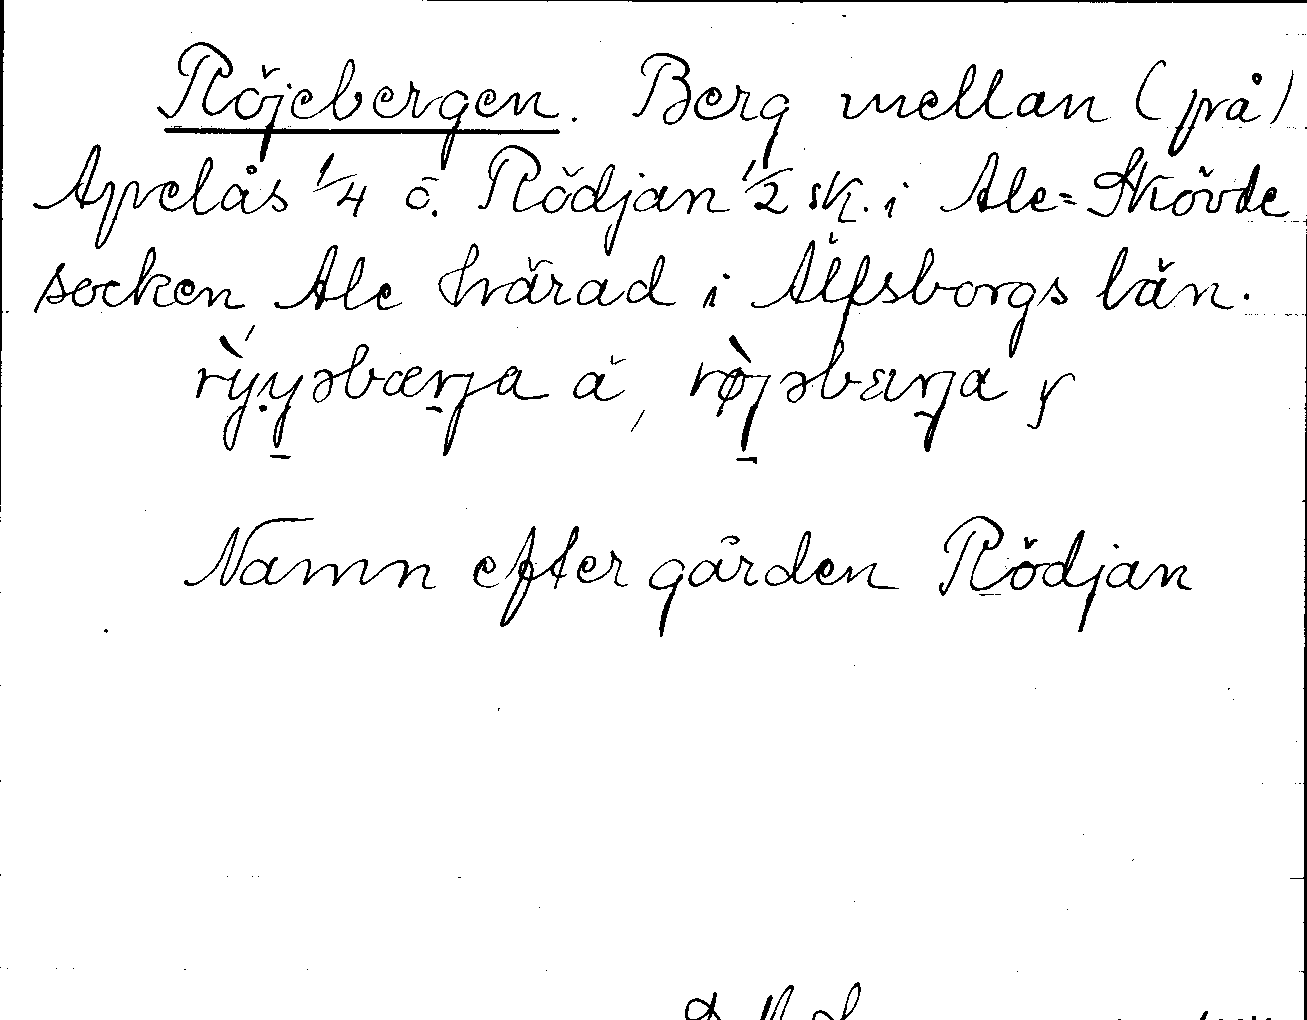 Röjebergen. Berg mellan (på)
Apelås 1/4 o. Rödjan 1/2 sk. i Ale-Skövde
socken, Ale härad i Älfsborgs län.
Namn efter gården Rödjan